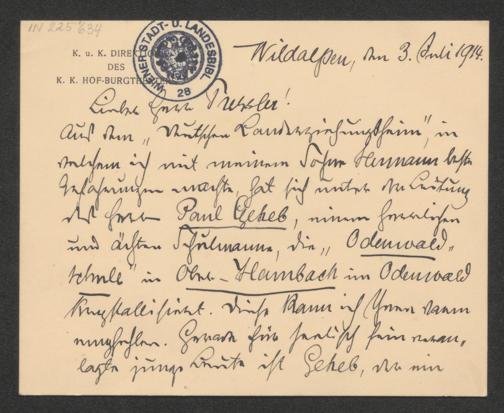 IN 225 634
K. u. K. DIREKTION
DES
K. K. HOF-BURGTHEATERS
WIENER STADT- U. LANDESBIBL.
28
Wildalpen, den 3. Juli 1914.
Lieber Herr Tressler!
Aus dem „Deutschen Landerziehungsheim", in
welchem ich mit meinem Sohne Hermann beste
Erfahrungen machte, hat sich unter der Leitung
des Herrn Paul Geheb, einem herrlichen
und ächten Schulmanne, die „Odenwald-
schule" in Ober-Hambach im Odenwald
krystallisiert. Diese kann ich Ihnen warm
empfehlen. Gerade für seelisch fein veran-
lagte junge Leute ist Geheb, der ein